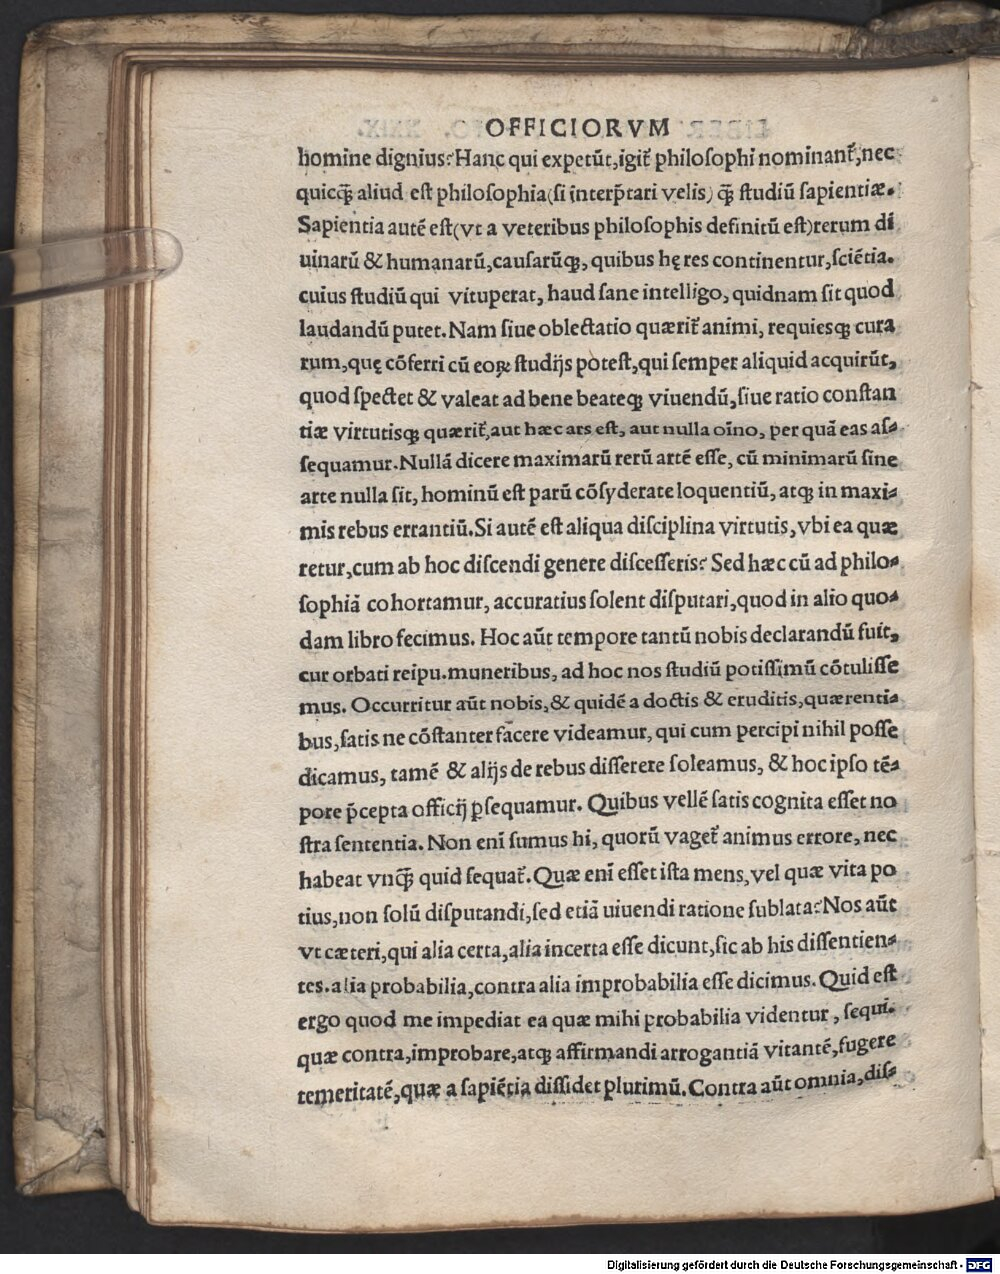 OFFICIORVM
homine dignius? Hanc qui expetũt, igit᷑ philoſophi nominant᷑, nec
quicq̃ aliud eſt philoſophia (ſi interp̃tari velis) q̃ ſtudiũ ſapientiæ.
Sapientia autẽ eſt (vt a veteribus philoſophis definitũ eſt) rerum di
uinarũ & humanarũ, cauſarũq;, quibus hę res continentur, ſciẽtia.
cuius ſtudiũ qui vituperat, haud ſane intelligo, quidnam ſit quod
laudandũ putet. Nam ſiue oblectatio quærit᷑ animi, requiesq; cura
rum, quę cõferri cũ eoꝝ ſtudijs poteſt, qui ſemper aliquid acquirũt,
quod ſpectet & valeat ad bene beateq; viuendũ, ſiue ratio conſtan
tiæ virtutisq; quærit᷑, aut hæc ars eſt, aut nulla oĩno, per quã eas aſ-
ſequamur. Nullã dicere maximarũ rerũ artẽ eſſe, cũ minimarũ ſine
arte nulla ſit, hominũ eſt parũ cõſyderate loquentiũ, atq; in maxi-
mis rebus errantiũ. Si autẽ eſt aliqua diſciplina virtutis, vbi ea quæ
retur, cum ab hoc diſcendi genere diſceſſeris? Sed hæc cũ ad philo-
ſophiã cohortamur, accuratius ſolent diſputari, quod in alio quo-
dam libro fecimus. Hoc aũt tempore tantũ nobis declarandũ fuit,
cur orbati reipu. muneribus, ad hoc nos ſtudiũ potiſſimũ cõtuliſſe
mus. Occurritur aũt nobis, & quidẽ a doctis & eruditis, quærenti-
bus, ſatis ne cõſtanter facere videamur, qui cum percipi nihil poſſe
dicamus, tamẽ & alijs de rebus diſſerere ſoleamus, & hoc ipſo tẽ-
pore p̃cepta officij ꝑſequamur. Quibus vellẽ ſatis cognita eſſet no
ſtra ſententia. Non enĩ ſumus hi, quorũ vaget᷑ animus errore, nec
habeat vnq̃ quid ſequat᷑. Quæ enĩ eſſet iſta mens, vel quæ vita po
tius, non ſolũ diſputandi, ſed etiã uiuendi ratione ſublata? Nos aũt
vt cæteri, qui alia certa, alia incerta eſſe dicunt, ſic ab his diſſentien-
tes. alia probabilia, contra alia improbabilia eſſe dicimus. Quid eſt
ergo quod me impediat ea quæ mihi probabilia videntur, ſequi.
quæ contra, improbare, atq; affirmandi arrogantiã vitantẽ, fugere
temeritatẽ, quæ a ſapiẽtia diſſidet plurimũ. Contra aũt omnia, diſ-
Digitalisierung gefördert durch die Deutsche Forschungsgemeinschaft - DFG